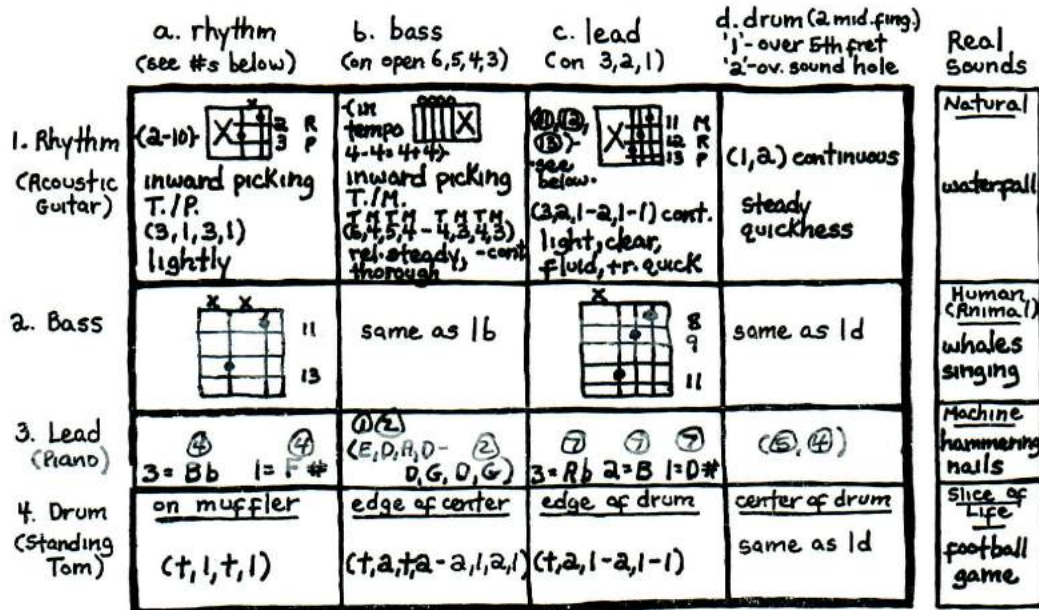 a. rhythm
(see #s below)
b. bass
(on open 6,5,4,3)
c. lead
(on 3,2,1)
d. drum (2 mid. fing.)
'1'- over 5th fret
'2'- ov. sound hole
Real
Sounds
1. Rhythm
(Acoustic
Guitar)
(2-10)
x
X
2 R
3 P
inward picking
T./P.
(3,1,3,1)
lightly
(in
tempo
4-4=4+4)
0000
X
inward picking
T./M.
T M T M T M T M
(6,4,5,4 - 4,3,4,3)
rel. steady, -cont.
thorough
(11, 12,
13)-
see
below.
X
11 M
12 R
13 P
(3,2,1-2,1-1) cont.
light, clear,
fluid, +r. quick
(1,2) continuous
steady
quickness
Natural
waterfall
2. Bass
x x
11
13
same as 1b
x
8
9
11
same as 1d
Human,
(Animal)
whales
singing
3. Lead
(Piano)
4 4
3 = Bb 1 = F#
1 2
(E,D,A,D- 2
D,G,D,G)
7 7 7
3 = Ab 2 = B 1 = D#
(5, 4)
Machine
hammering
nails
4. Drum
(Standing
Tom)
on muffler
(t,1,t,1)
edge of center
(t,2,t,2 - 2,1,2,1)
edge of drum
(t,2,1-2,1-1)
center of drum
same as 1d
Slice of
Life
football
game